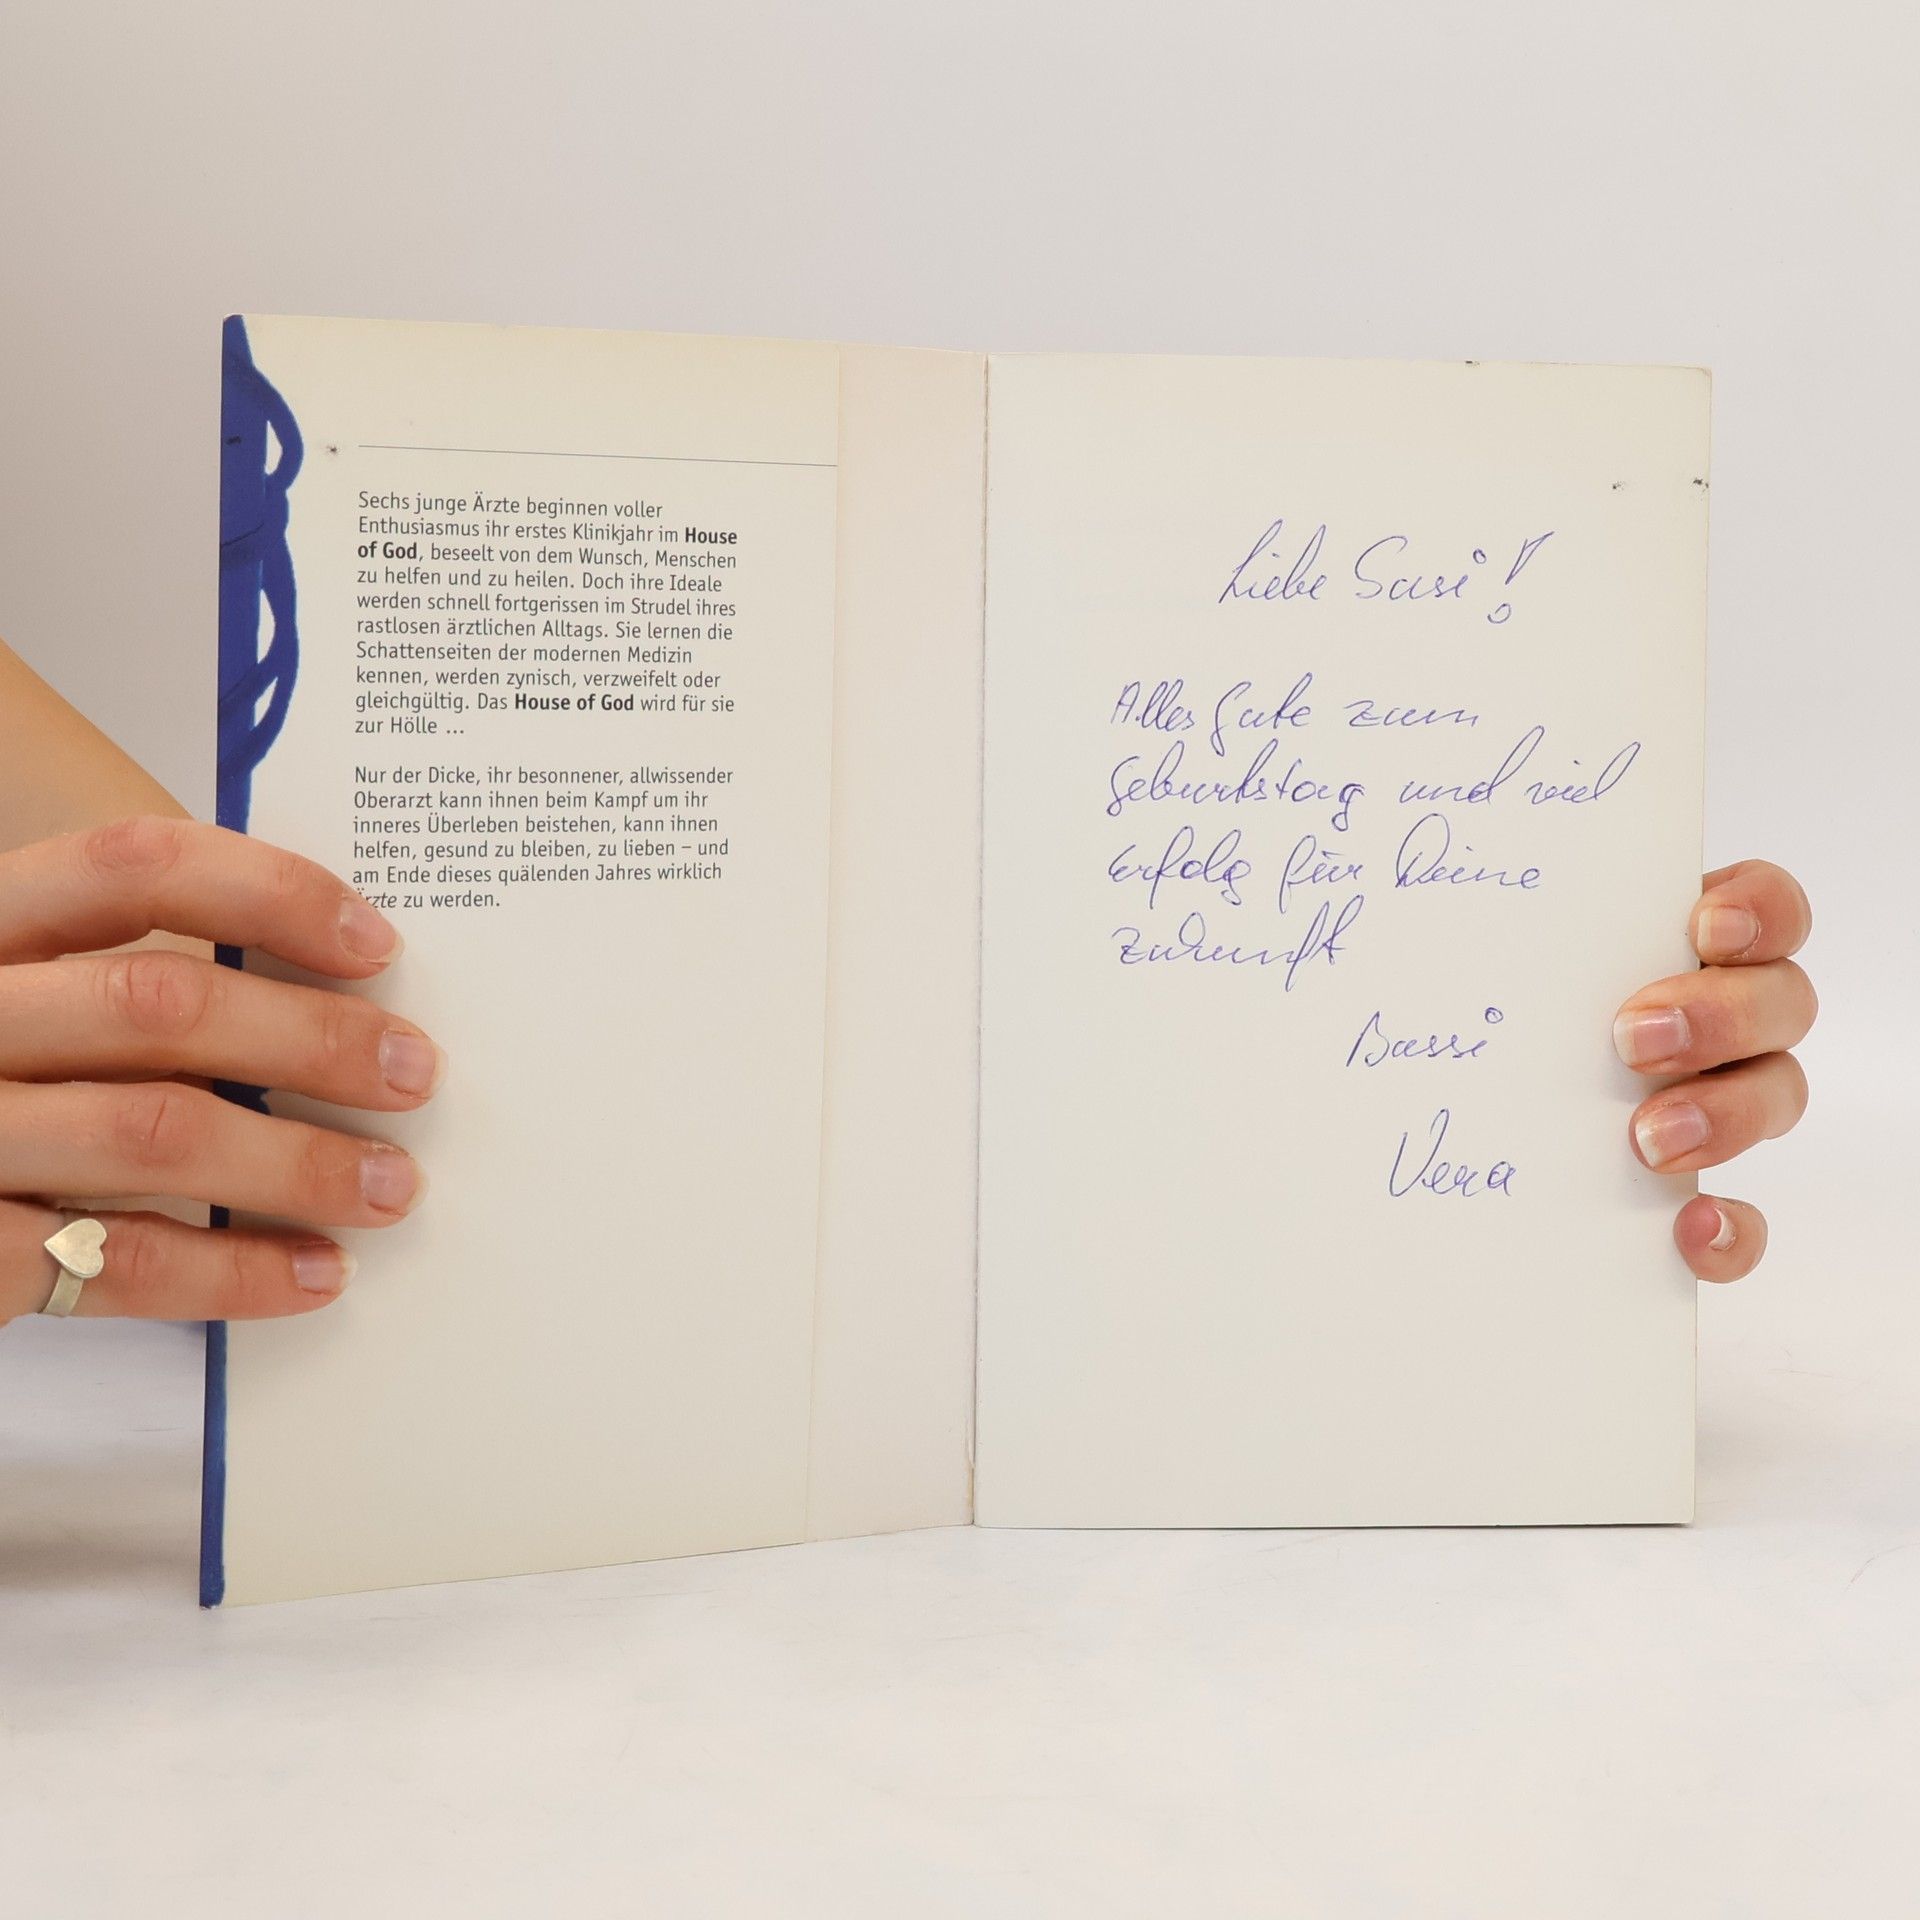 Sechs junge Ärzte beginnen voller
Enthusiasmus ihr erstes Klinikjahr im House
of God, beseelt von dem Wunsch, Menschen
zu helfen und zu heilen. Doch ihre Ideale
werden schnell fortgerissen im Strudel ihres
rastlosen ärztlichen Alltags. Sie lernen die
Schattenseiten der modernen Medizin
kennen, werden zynisch, verzweifelt oder
gleichgültig. Das House of God wird für sie
zur Hölle ...
Nur der Dicke, ihr besonnener, allwissender
Oberarzt kann ihnen beim Kampf um ihr
inneres Überleben beistehen, kann ihnen
helfen, gesund zu bleiben, zu lieben – und
am Ende dieses quälenden Jahres wirklich
Ärzte zu werden.
Liebe Susi!
Alles Gute zum
Geburtstag und viel
Erfolg für Deine
Zukunft
Bussi
Vera